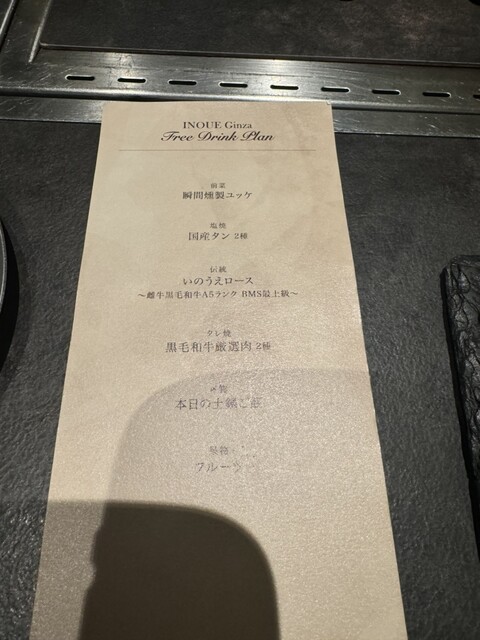 INOUE Ginza
Free Drink Plan
前菜
瞬間燻製ユッケ
塩焼
国産タン 2種
伝統
いのうえロース
～雌牛黒毛和牛A5ランク BMS最上級～
タレ焼
黒毛和牛厳選肉 2種
本日の土鍋ご飯
フルーツ